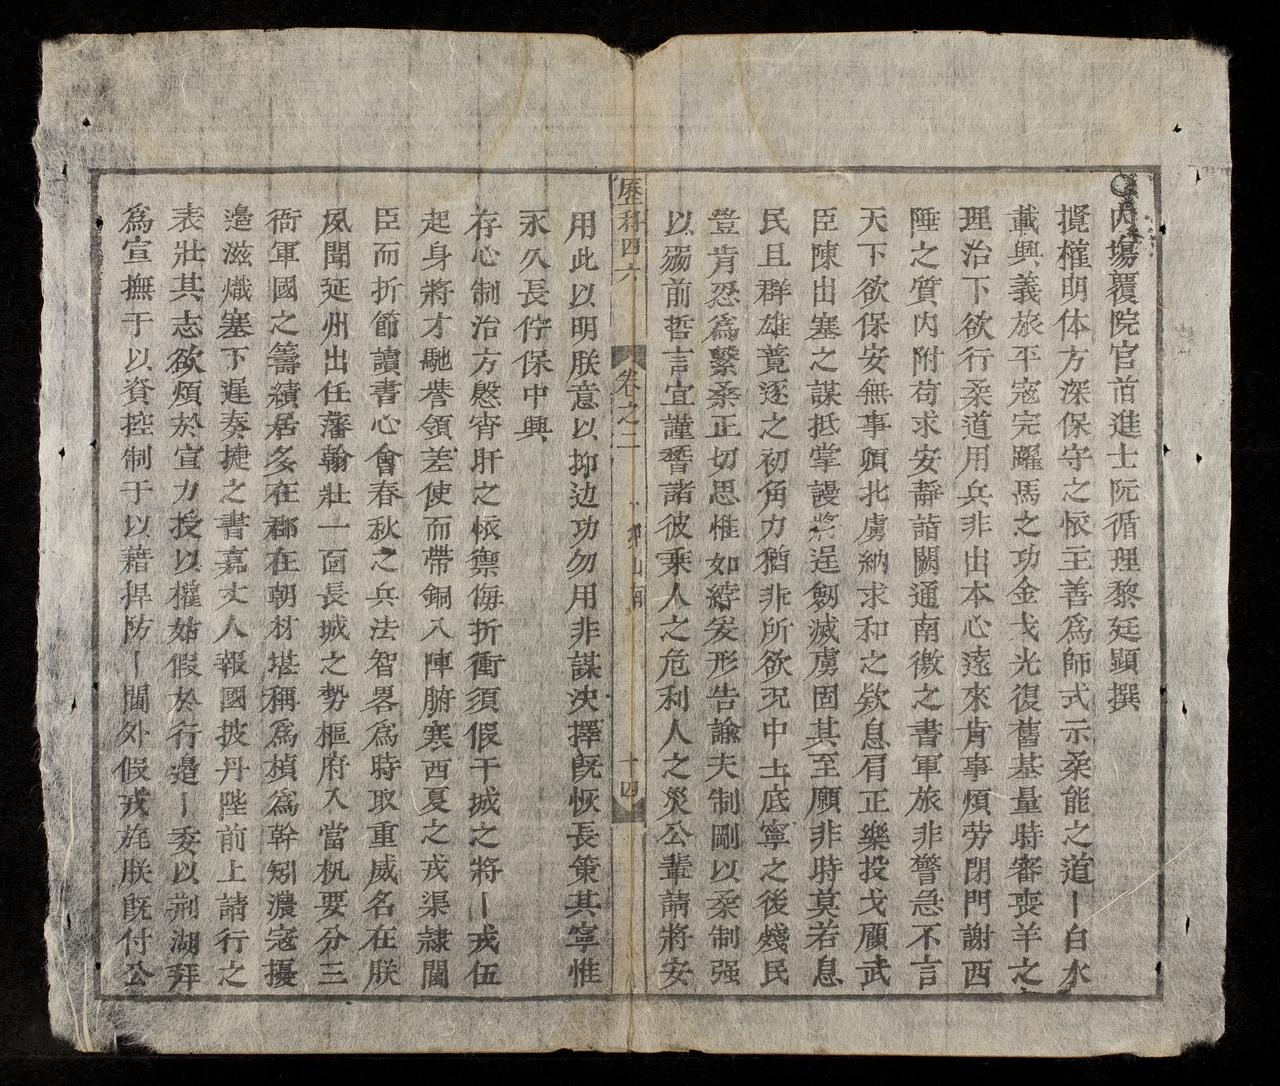 內場覆院官首進士阮循理黎廷顯撰
攬權明体方深保守之懷主善爲師式示柔能之道｜白水
載興義旅平寇完躍馬之功金戈光復舊基量時審喪羊之
理治下欲行柔道用兵非出本心遠來肯事煩勞閉門謝西
陲之質內附苟求安靜詣闕通南徼之書軍旅非警急不言
天下欲保安無事頃北虜納求和之欵息肩正樂投戈願武
臣陳出塞之謀抵掌謾將逞劒滅虜固其至願非時莫若息
民且群雄競逐之初角力猶非所欲况中土底寧之後殘民
豈肯忍爲繫桑正切思惟如綍爰形告諭夫制剛以柔制强
以弱前哲言宜謹詧諸彼乘人之危利人之災公輩請將安
歷科四六
卷之二
山南
十四
用此以明朕意以抑边功勿用非謀決擇既恢長策其寧惟
永久長佇保中興
存心制治方慇宵旰之懷禦侮折衝須假干城之將｜戎伍
起身將才馳譽領差使而帶銅入陣腑寒西夏之戎渠隷閫
臣而折節讀書心會春秋之兵法智畧爲時取重威名在朕
夙聞延州出任藩翰壯一面長城之勢樞府入當机要分三
衙軍國之籌績居多在郡在朝材堪稱爲楨爲幹矧濃寇擾
邊滋熾塞下遲奏捷之書嘉丈人報國披丹陛前上請行之
表壯其志欲煩於宣力授以權姑假於行邉｜委以荆湖拜
爲宣撫于以資控制于以藉捍防｜閫外假戎旄朕既付公